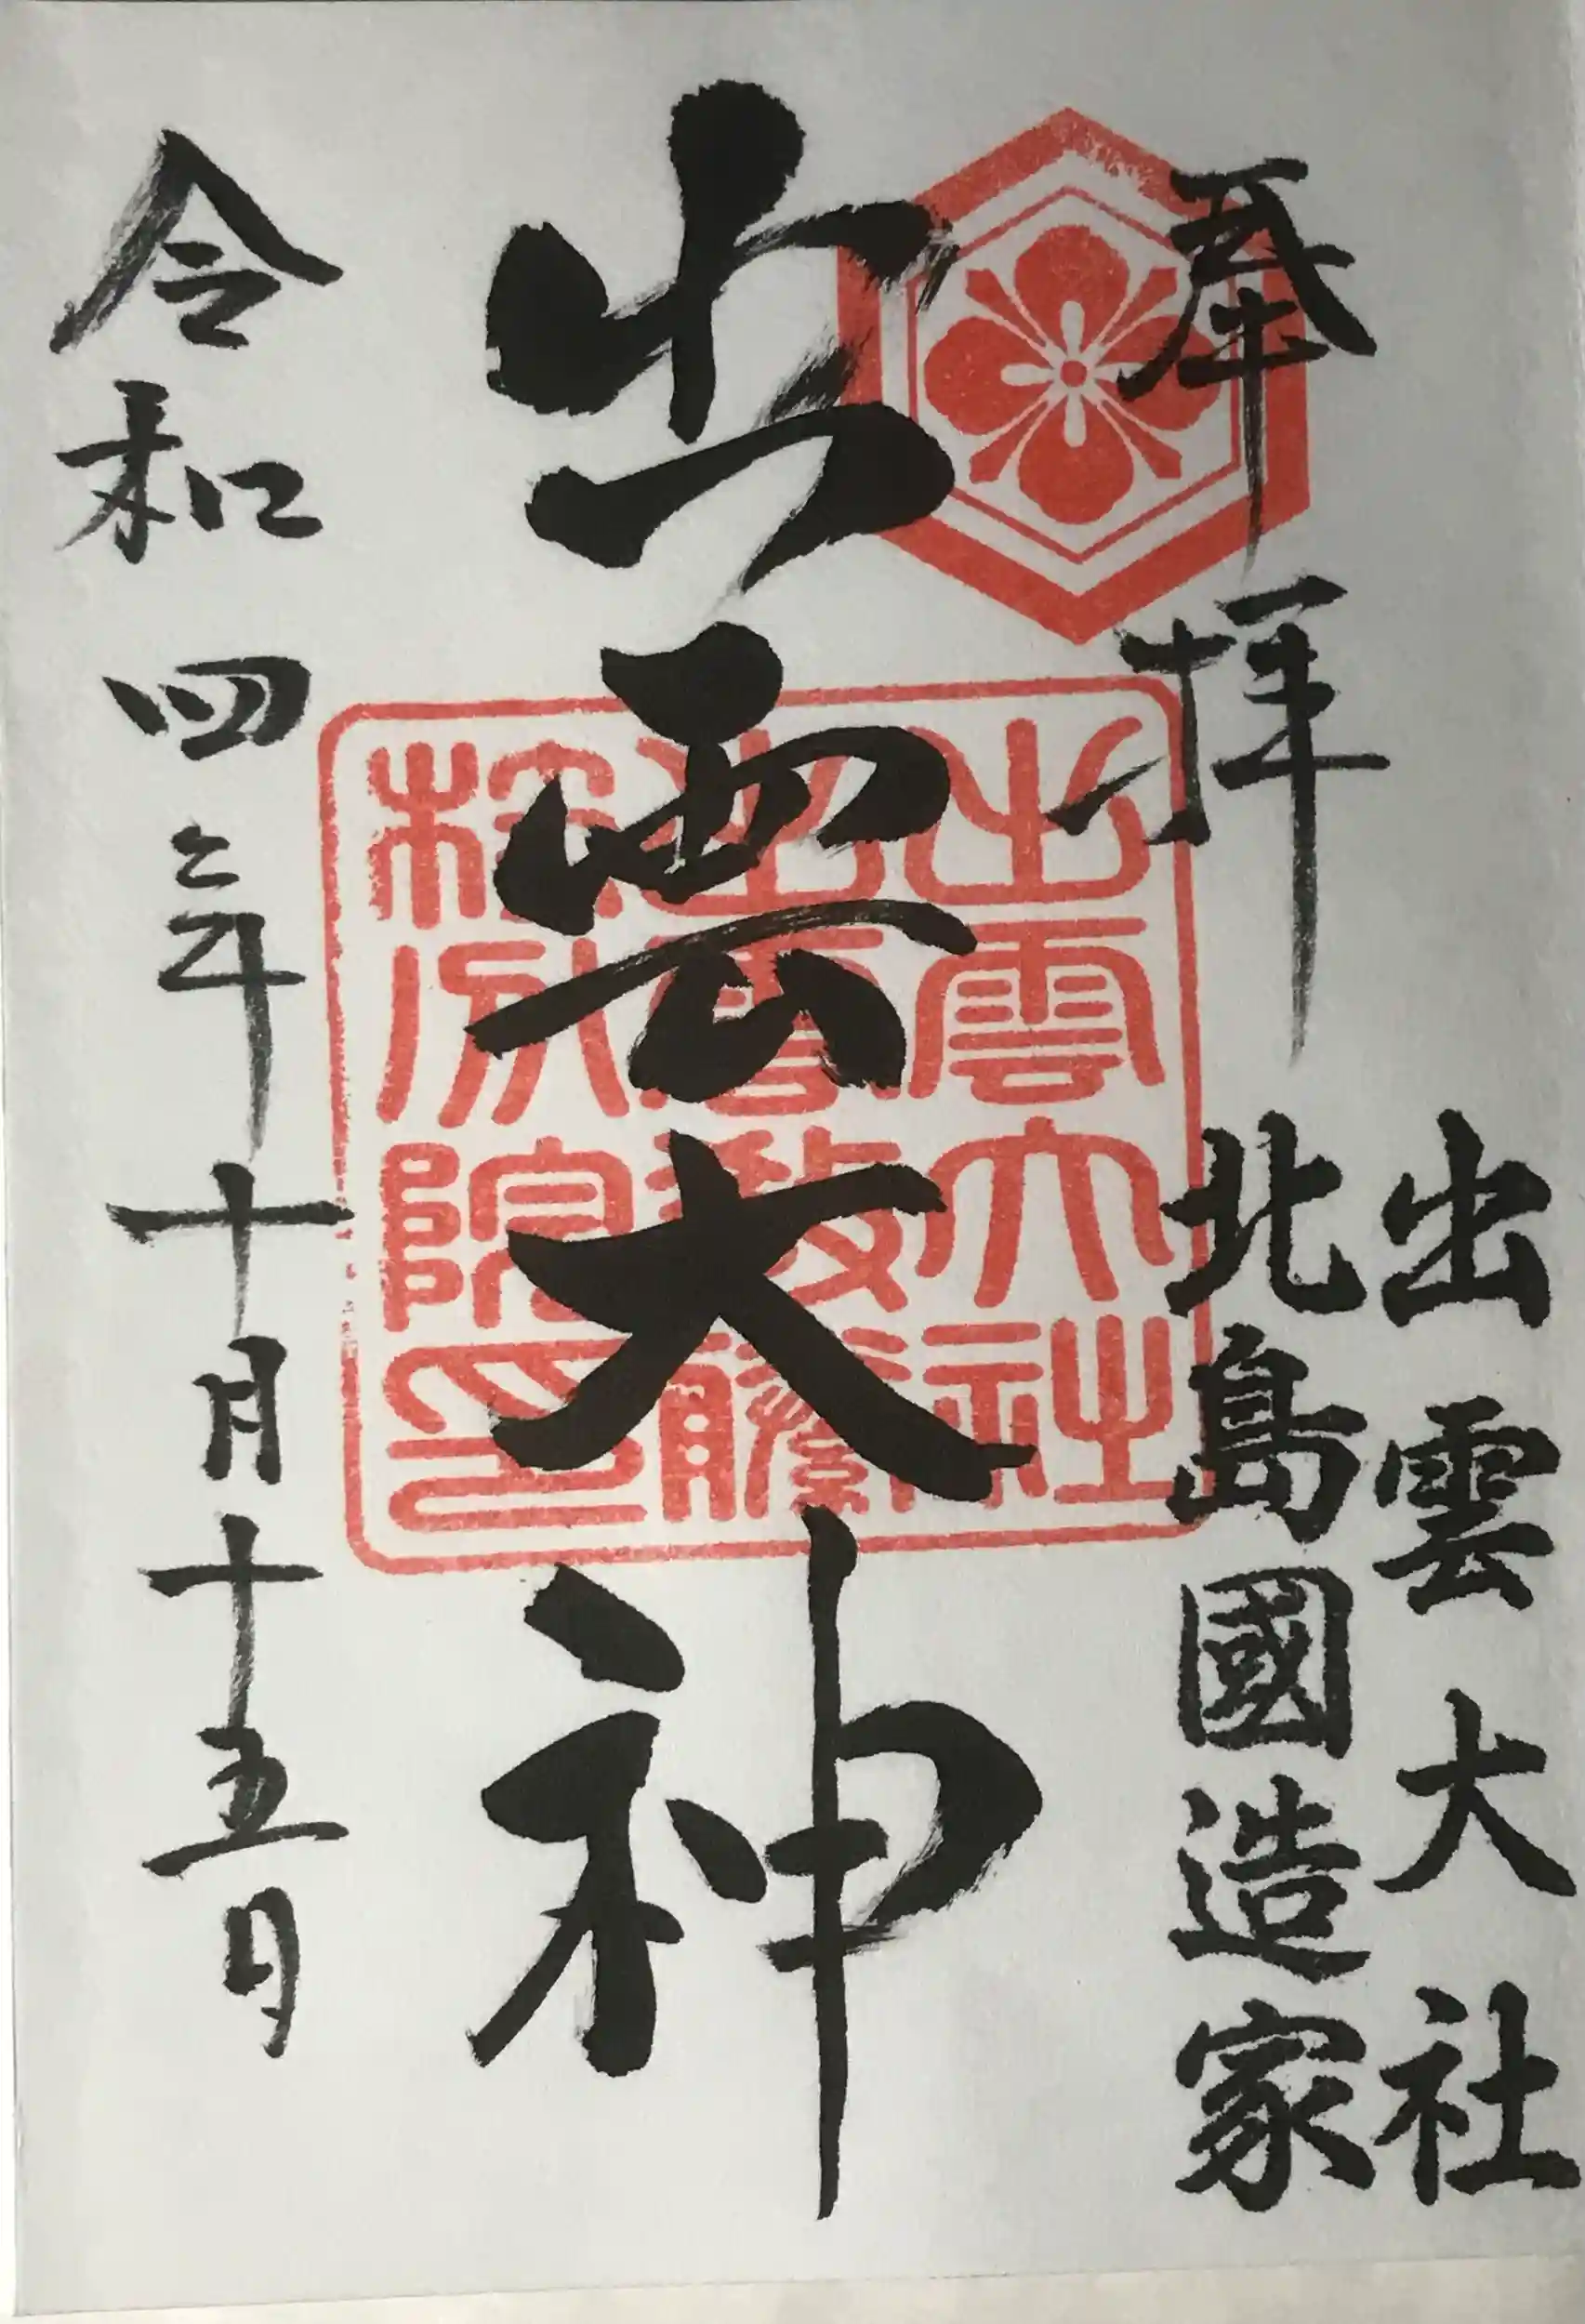 奉拝
出雲大社
北島國造家
出雲大神
令和四年十月十五日
出雲大社
分院印